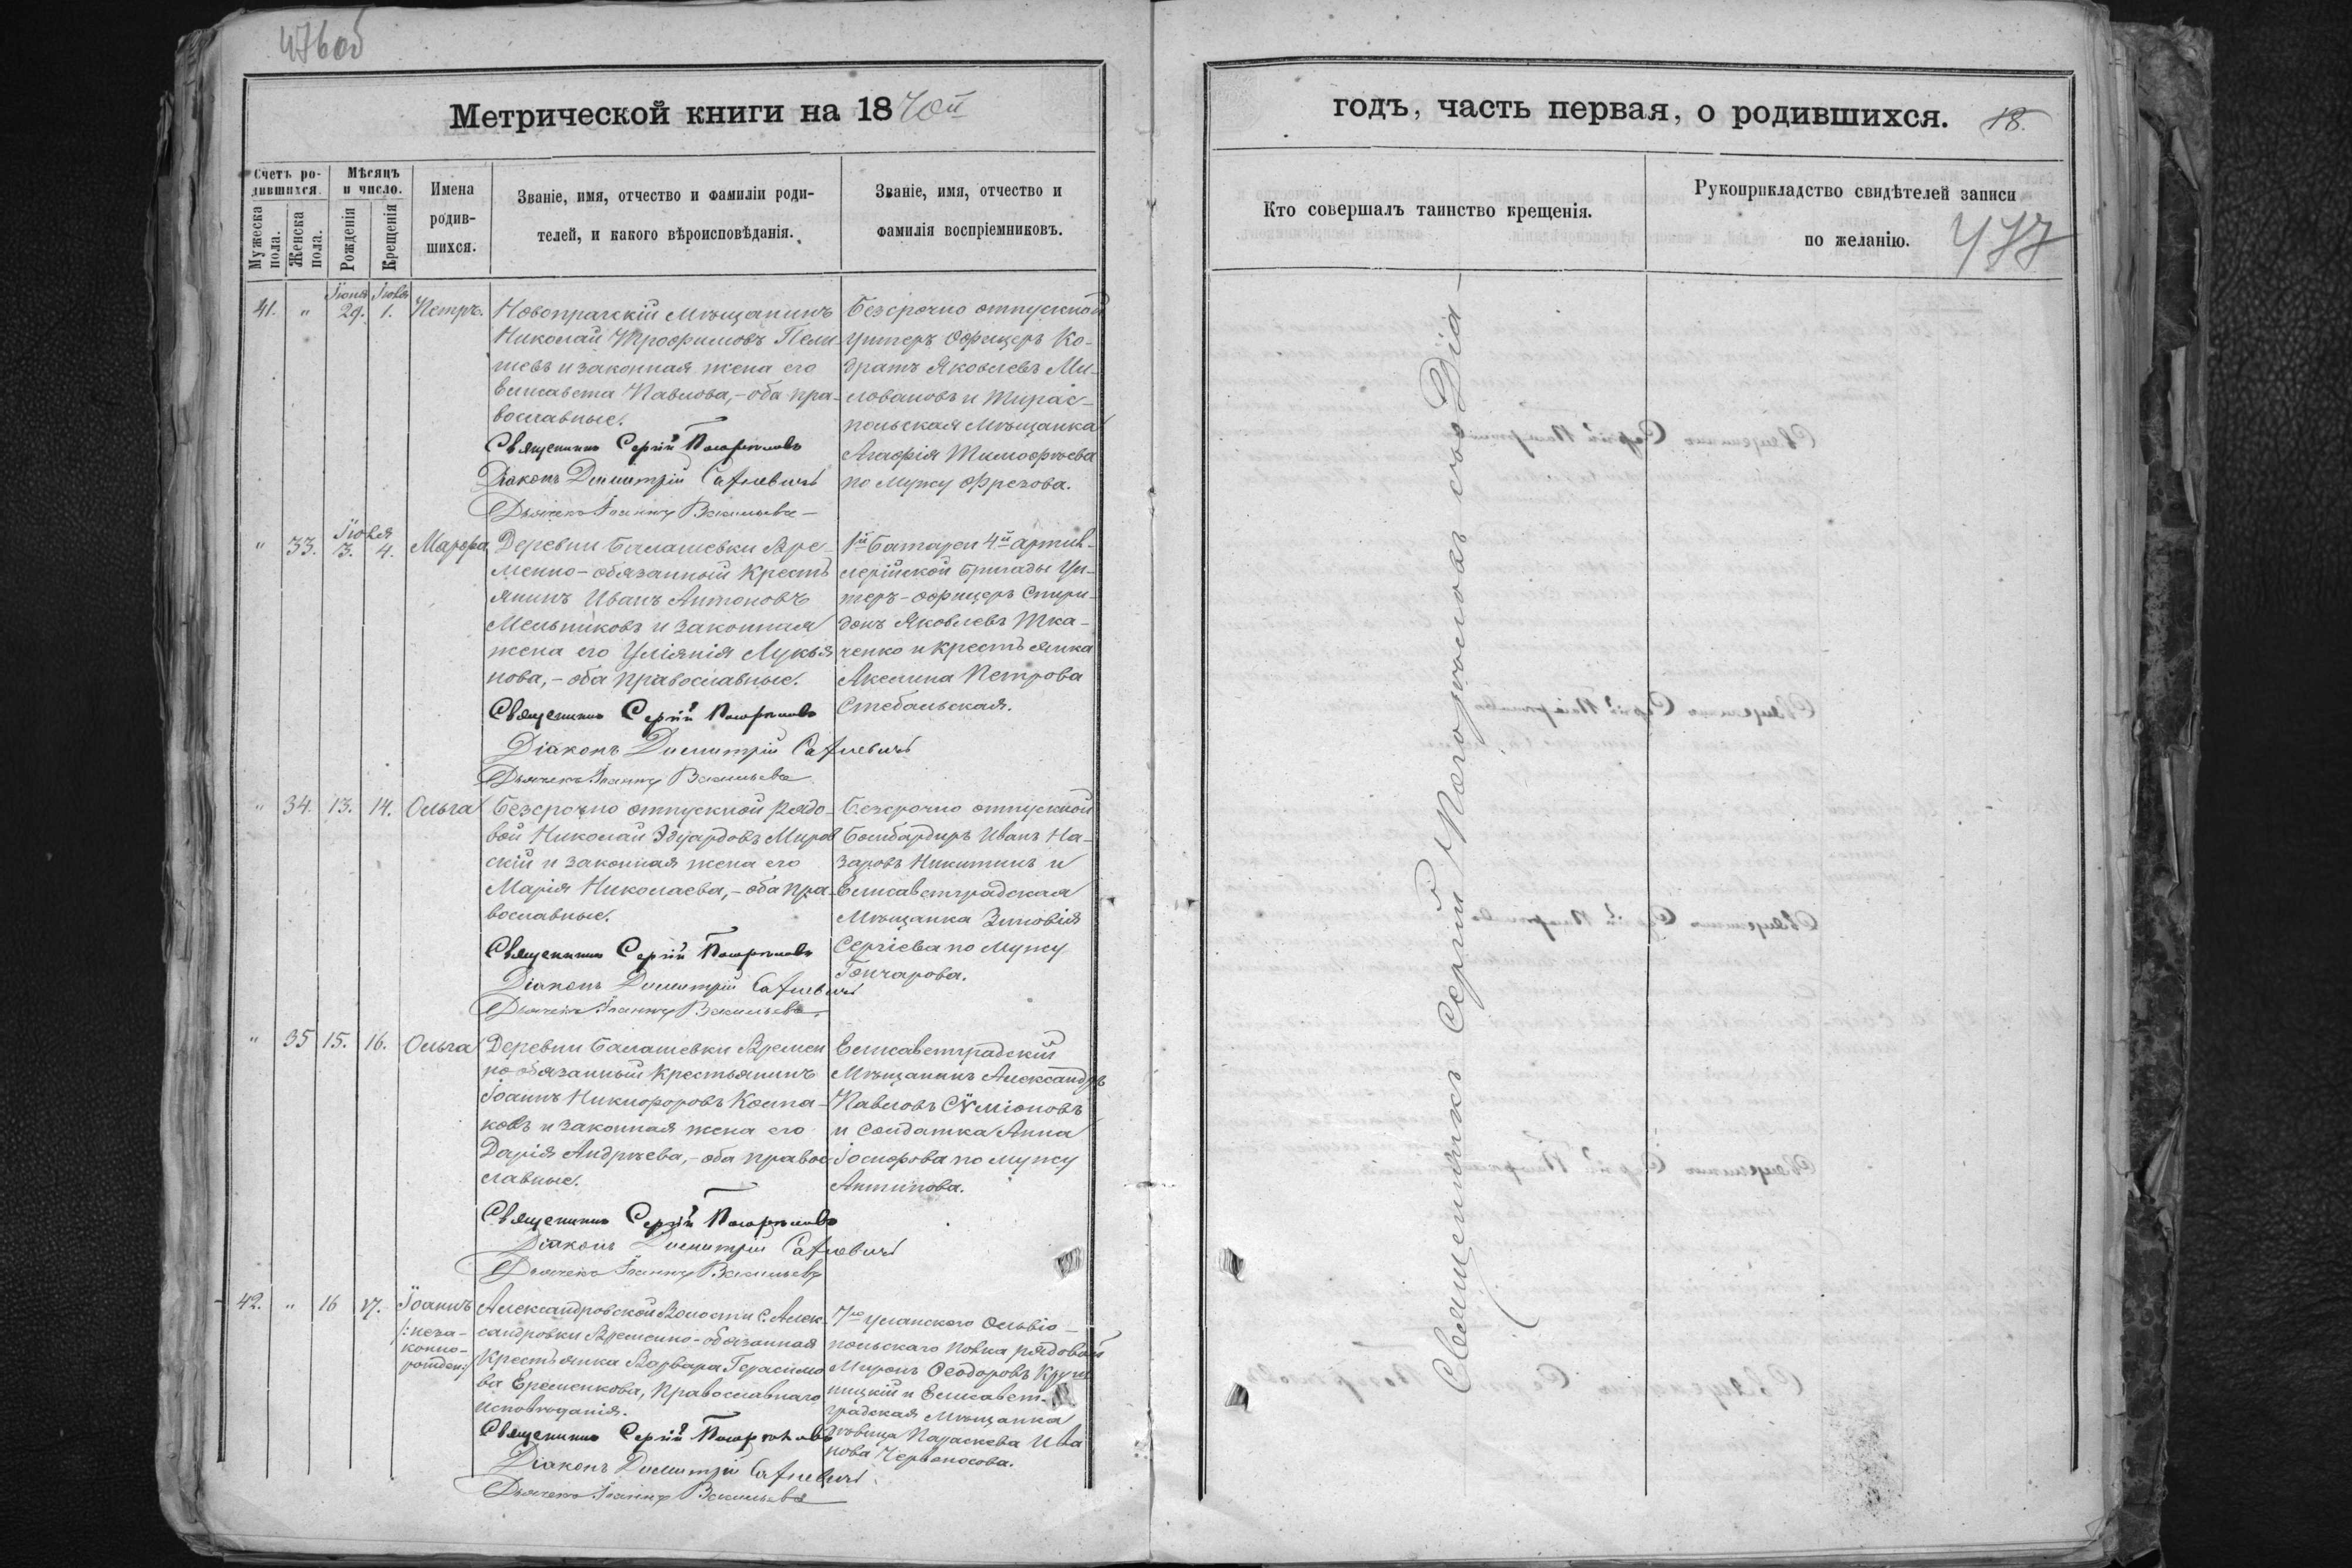 476об
Метрической книги на 1870й
Счетъ родившихся.
Мѣсяцъ и число.
Мужеска пола.
Женска пола.
Рожденія
Крещенія
Имена родившихся.
Званіе, имя, отчество и фамиліи родителей, и какого вѣроисповѣданія.
Званіе, имя, отчество и фамилія воспріемниковъ.
41. " Іюня 29. Іюля 1. Петръ.
Новопражскій Мѣщанинъ
Николай Трофимовъ
и законная жена его
Елисавета Павлова,-оба пра-
вославные.
Священникъ Сергій Погорѣловъ
Діаконъ Димитрій
Дьячекъ Іоаннъ Васильевъ
Безсрочно отпускной
Унтеръ Офицеръ Ко-
дратъ Яковлевъ Ми-
ловановъ и Тирас-
польская Мѣщанка
Агафія Тимофѣева
по Мужу Фрезова.
" 33. Іюля 3. 4. Марфа
Деревни Балашевки Вре-
менно-обязанный Кресть
янинъ Иванъ Антоновъ
Мельниковъ и законная
жена его Уліянія Лукья
нова,-оба Православные.
Священникъ Сергій Погорѣловъ
Діаконъ Димитрій
Дьячекъ Іоаннъ Васильевъ
1й Батареи 4й артил-
лерійской бригады Ун-
теръ-офицеръ Спири-
донъ Яковлевъ Тка-
ченко и крестьянка
Акелина Петрова
Стебальская.
" 34. 13. 14. Ольга
Безсрочно отпускной рядо-
вой Николай Эдуардовъ Миров
скій и законная жена его
Марія Николаева,-оба пра-
вославные.
Священникъ Сергій Погорѣловъ
Діаконъ Димитрій
Дьячекъ Іоаннъ Васильевъ
Безсрочно отпускной
Бомбардиръ Иванъ На-
заровъ Никитинъ и
Елисаветградская
Мѣщанка Зиновія
Сергіева по Мужу
Гончарова.
" 35 15. 16. Ольга
Деревни Балашевки Времен
но обязанный Крестьянинъ
Іоаннъ Никифоровъ Колпа-
ковъ и законная жена его
Дарія Андрѣева,-оба право-
славные.
Священникъ Сергій Погорѣловъ
Діаконъ Димитрій
Дьячекъ Іоаннъ Васильевъ
Елисаветградскій
Мѣщанинъ Александръ
Павловъ Сѵміоновъ
и Солдатка Анна
Іосифова по мужу
Антипова.
42. " 16 17. Іоаннъ
/:неза-
конно-
рожден:/
Александровской Волости С. Алек-
сандровки Временно-обязанная
Крестьянка Варвара Герасимо
ва Еременкова, Православнаго
исповѣданія.
Священникъ Сергій Погорѣловъ
Діаконъ Димитрій
Дьячекъ Іоаннъ Васильевъ
7го уланскаго Ольвіо-
польскаго полка рядовой
Миронъ Ѳеодоровъ
и Елисавет-
градская Мѣщанка
дѣвица Параскева Ива
нова Червоносова.
годъ, часть первая, о родившихся. 18.
Кто совершалъ таинство крещенія.
Рукоприкладство свидѣтелей записи
по желанію.
477
Священникъ Сергій Погорѣловъ съ Діа-